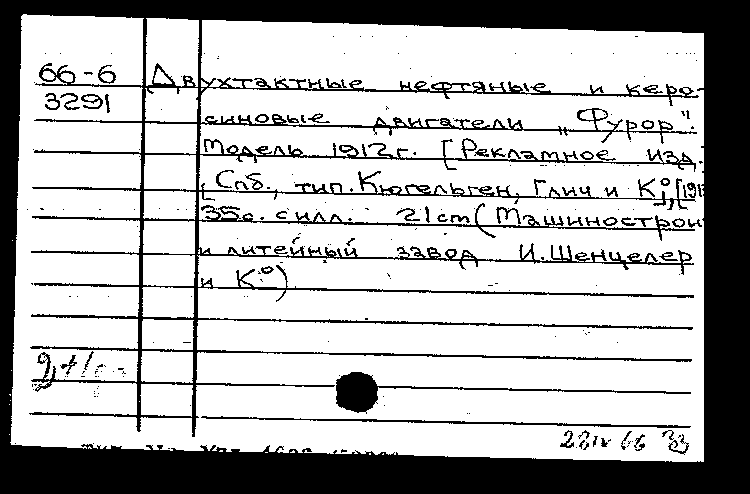 66-6 Двухтактные нефтяные и керо-
3291 синовые двигатели „Фурор".
Модель 1912 г. [Рекламное изд.
[Спб., тип. Кюгельген, Глич и К°], [191
35с. с илл. 21 cm (Машиностроит
и литейный завод И. Шенцелер
и К°)
281v 66 33